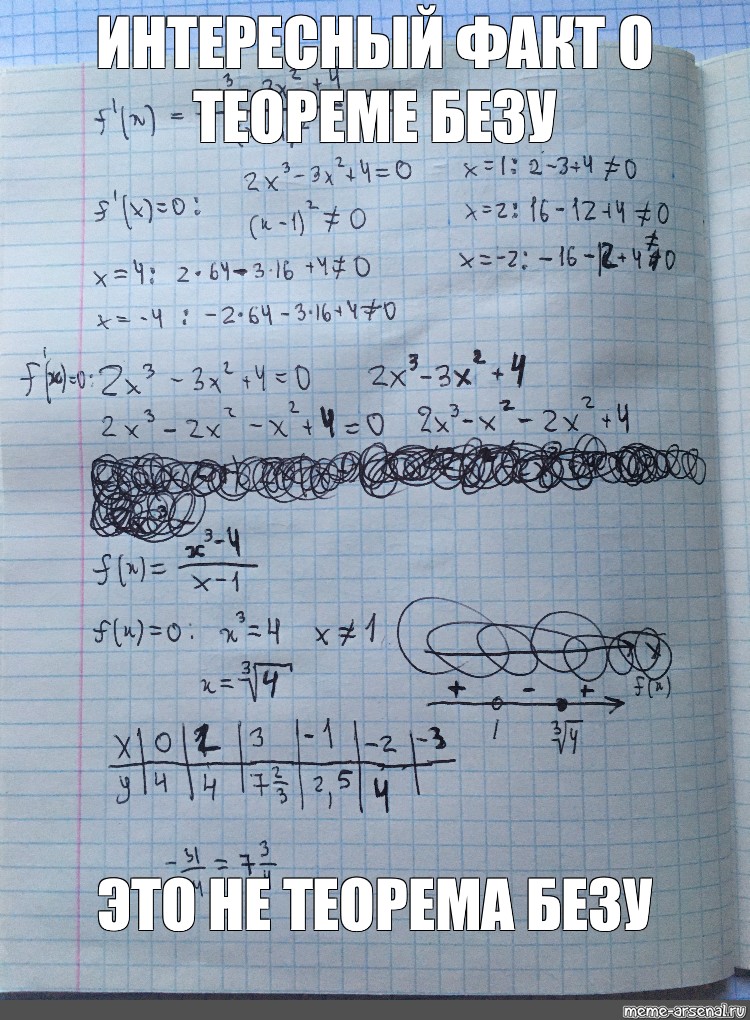 ИНТЕРЕСНЫЙ ФАКТ О
ТЕОРЕМЕ БЕЗУ
f'(x) =
f'(x)=0: 2x³-3x²+4=0
(x-1)² ≠ 0
x=1: 2-3+4≠0
x=2: 16-12+4≠0
x=-2: -16-12+4≠0
x=4: 2·64-3·16+4≠0
x=-4: -2·64-3·16+4≠0
f'(x)=0: 2x³-3x²+4=0 2x³-3x²+4
2x³-2x²-x²+4=0 2x³-x²-2x²+4
f(x)= x³-4
x-1
f(x)=0: x³=4 x≠1
x=∛4
+ - + f(x)
1 ∛4
x 0 2 3 -1 -2 -3
y 4 4 7 2/3 2,5 4
-31/4 = 7 3/4
ЭТО НЕ ТЕОРЕМА БЕЗУ
meme-arsenal.ru